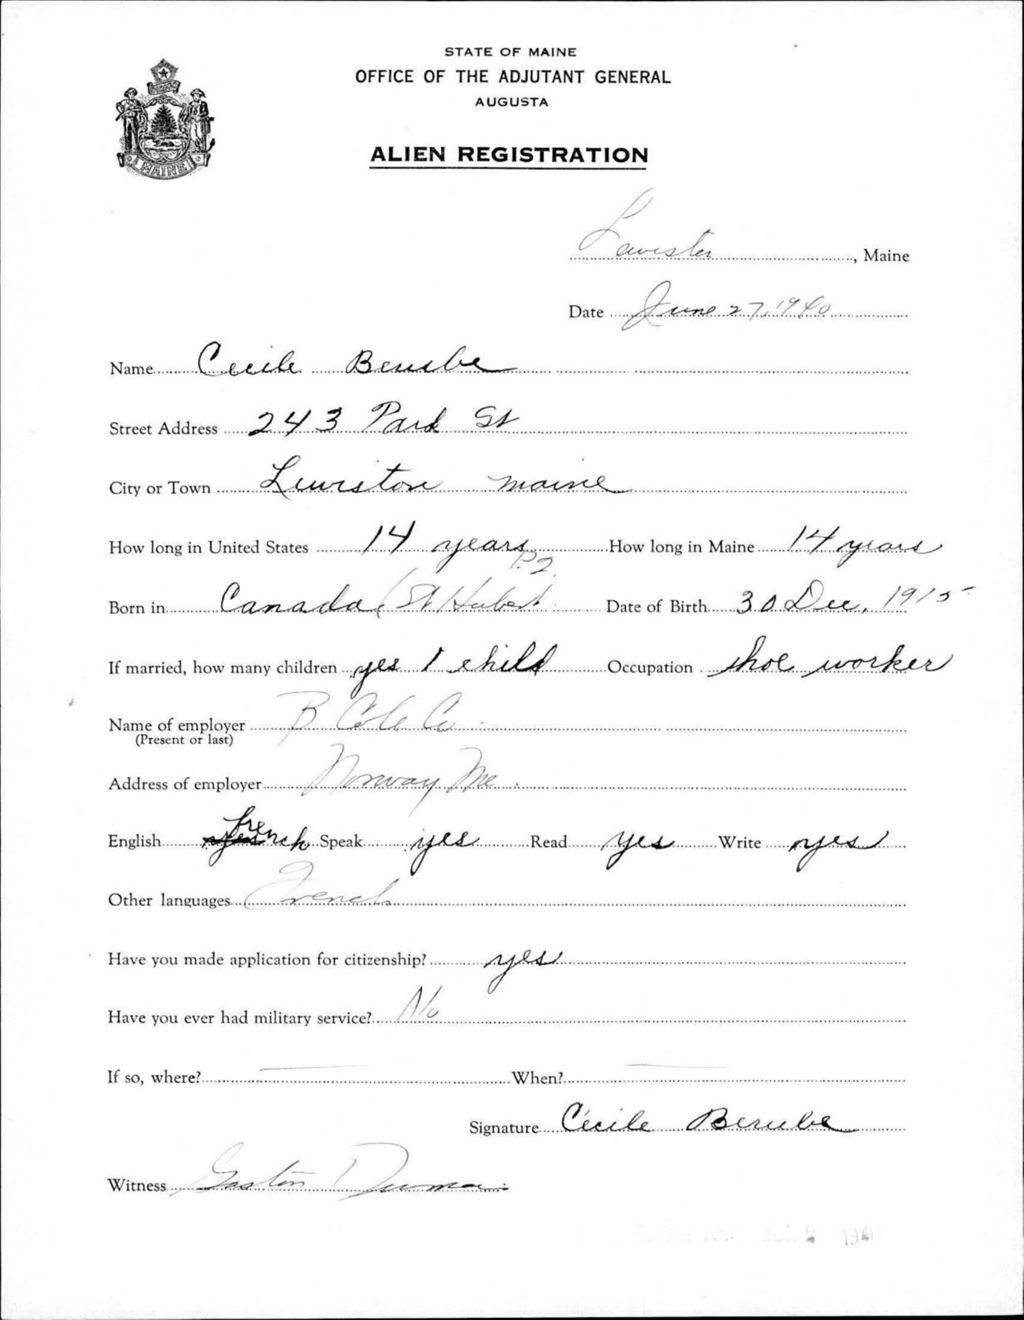 STATE OF MAINE
OFFICE OF THE ADJUTANT GENERAL
AUGUSTA
ALIEN REGISTRATION
MAINE
Lewiston, Maine
Date June 27, 1940
Name Cecile Berube
Street Address 243 Park St
City or Town Lewiston Maine
How long in United States 14 years How long in Maine 14 years
Born in Canada (St Hubert P.Q. Date of Birth 30 Dec, 1915
If married, how many children yes 1 child Occupation shoe worker
Name of employer B Cole Co.
(Present or last)
Address of employer Norway Me.
English French Speak yes Read yes Write yes
Other languages French
Have you made application for citizenship? yes
Have you ever had military service? No
If so, where? When?
Signature Cécile Berube
Witness Gaston